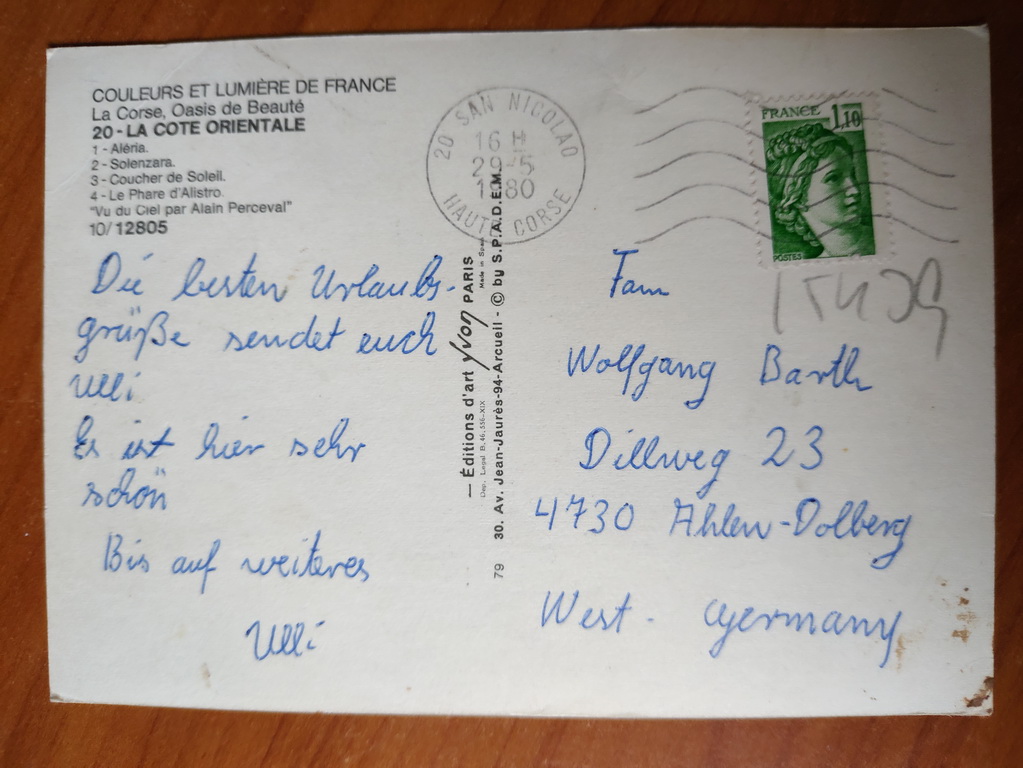 COULEURS ET LUMIÈRE DE FRANCE
La Corse, Oasis de Beauté
20 - LA COTE ORIENTALE
1 - Aléria.
2 - Solenzara.
3 - Coucher de Soleil.
4 - Le Phare d'Alistro.
"Vu du Ciel par Alain Perceval"
10/12805
20 SAN NICOLAO
16 H
29-5
1980
HAUTE CORSE
FRANCE 1,10
POSTES
Die besten Urlaubs-
grüße sendet euch
Ulli
Es ist hier sehr
schön
Bis auf weiteres
Ulli
— Éditions d'art yvon PARIS
Made in
Dép. Légal B. 46.556-XIX
79 30. Av. Jean-Jaurès-94-Arcueil - © by S.P.A.D.E.M.
Fam
Wolfgang Barth
Dillweg 23
4730 Ahlen-Dolberg
West. Germany